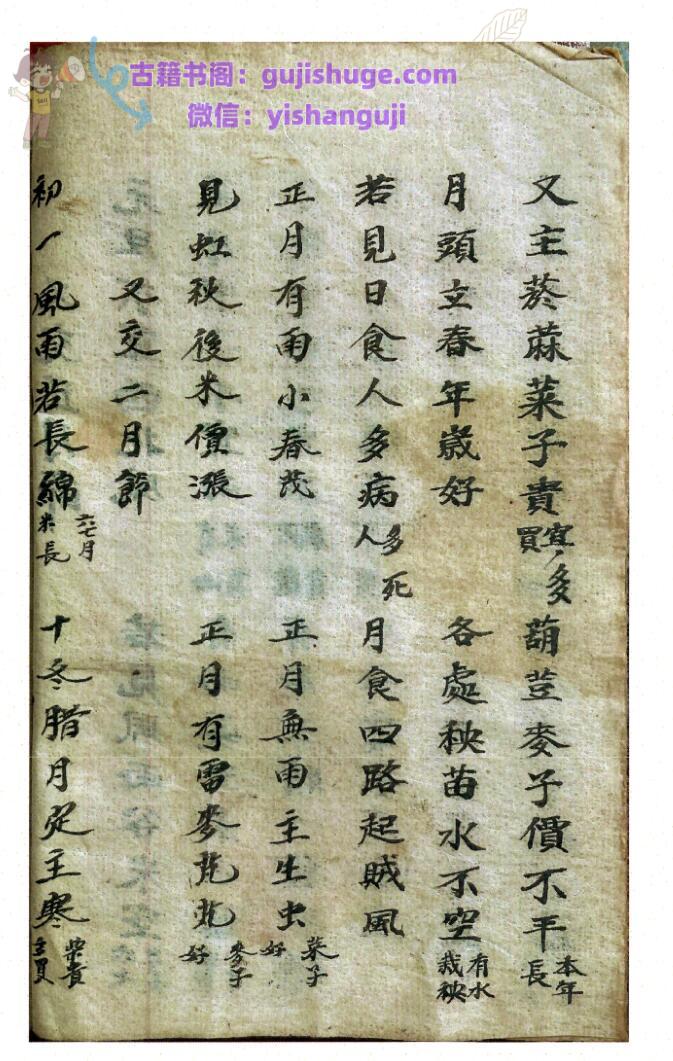 古籍书阁：gujishuge.com
微信：yishanguji
又主菸蔴菜子貴宜多買葫荳麥子價不平本年長
月頭立春年歲好各處秧苗水不空有水栽秧
若見日食人多病多死人月食四路起賊風
正月有雨小春茂正月無雨主生虫菜子好
見虹秋後米價漲正月有雷麥芃芃麥子好
又交二月節
初一風雨若長綿六七月米長十冬腊月定主寒柴貴